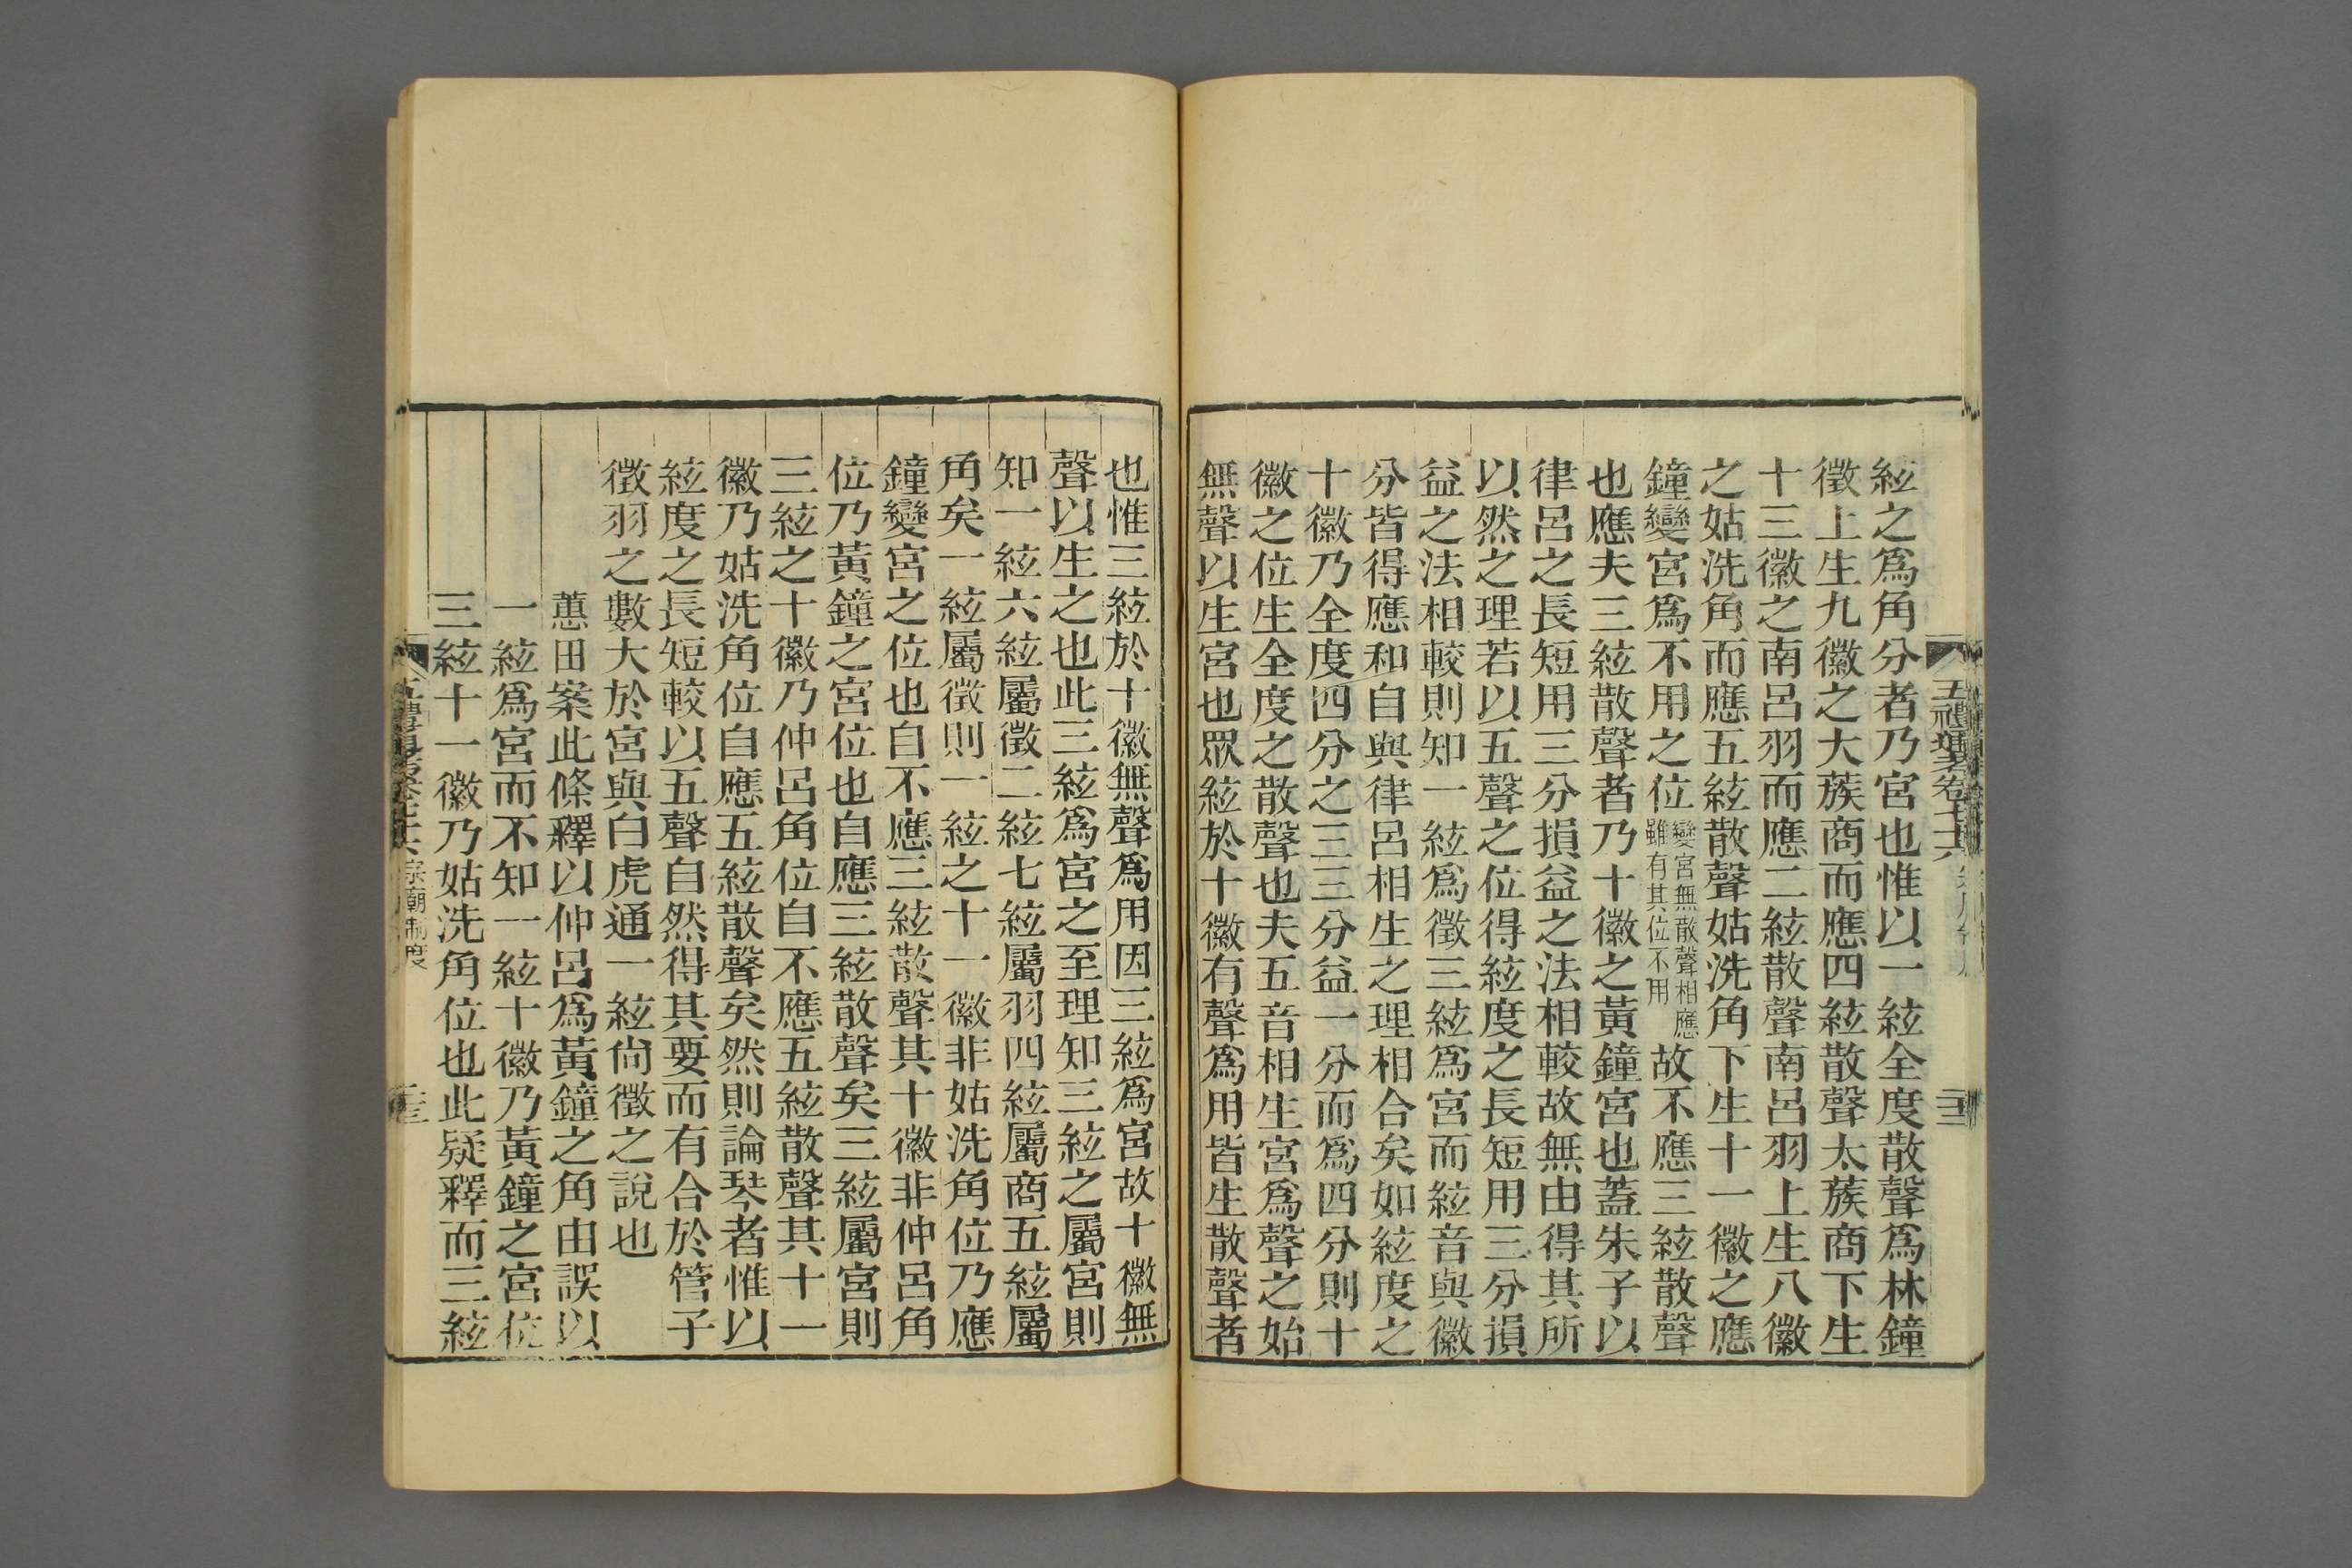 絃之爲角分者乃宮也惟以一絃全度散聲爲林鐘
徵上生九徽之大蔟商而應四絃散聲太蔟商下生
十三徽之南呂羽而應二絃散聲南呂羽上生八徽
之姑洗角而應五絃散聲姑洗角下生十一徽之應
鐘變宮爲不用之位變宮無散聲相應雖有其位不用故不應三絃散聲
也應夫三絃散聲者乃十徽之黃鐘宮也蓋朱子以
律呂之長短用三分損益之法相較故無由得其所
以然之理若以五聲之位得絃度之長短用三分損
益之法相較則知一絃爲徵三絃爲宮而絃音與徽
分皆得應和自與律呂相生之理相合矣如絃度之
十徽乃全度四分之三三分益一分而爲四分則十
徽之位生全度之散聲也夫五音相生宮爲聲之始
無聲以生宮也眾絃於十徽有聲爲用皆生散聲者
五禮通考卷七十六
也惟三絃於十徽無聲爲用因三絃爲宮故十徽無
聲以生之也此三絃爲宮之至理知三絃之屬宮則
知一絃六絃屬徵二絃七絃屬羽四絃屬商五絃屬
角矣一絃屬徵則一絃之十一徽非姑洗角位乃應
鐘變宮之位也自不應三絃散聲其十徽非仲呂角
位乃黃鐘之宮位也自應三絃散聲矣三絃屬宮則
三絃之十徽乃仲呂角位自不應五絃散聲其十一
徽乃姑洗角位自應五絃散聲矣然則論琴者惟以
絃度之長短較以五聲自然得其要而有合於管子
徵羽之數大於宮與白虎通一絃尙徵之說也
蕙田案此條釋以仲呂爲黃鐘之角由誤以
一絃爲宮而不知一絃十徽乃黃鐘之宮位
三絃十一徽乃姑洗角位也此疑釋而三絃
宗廟制度